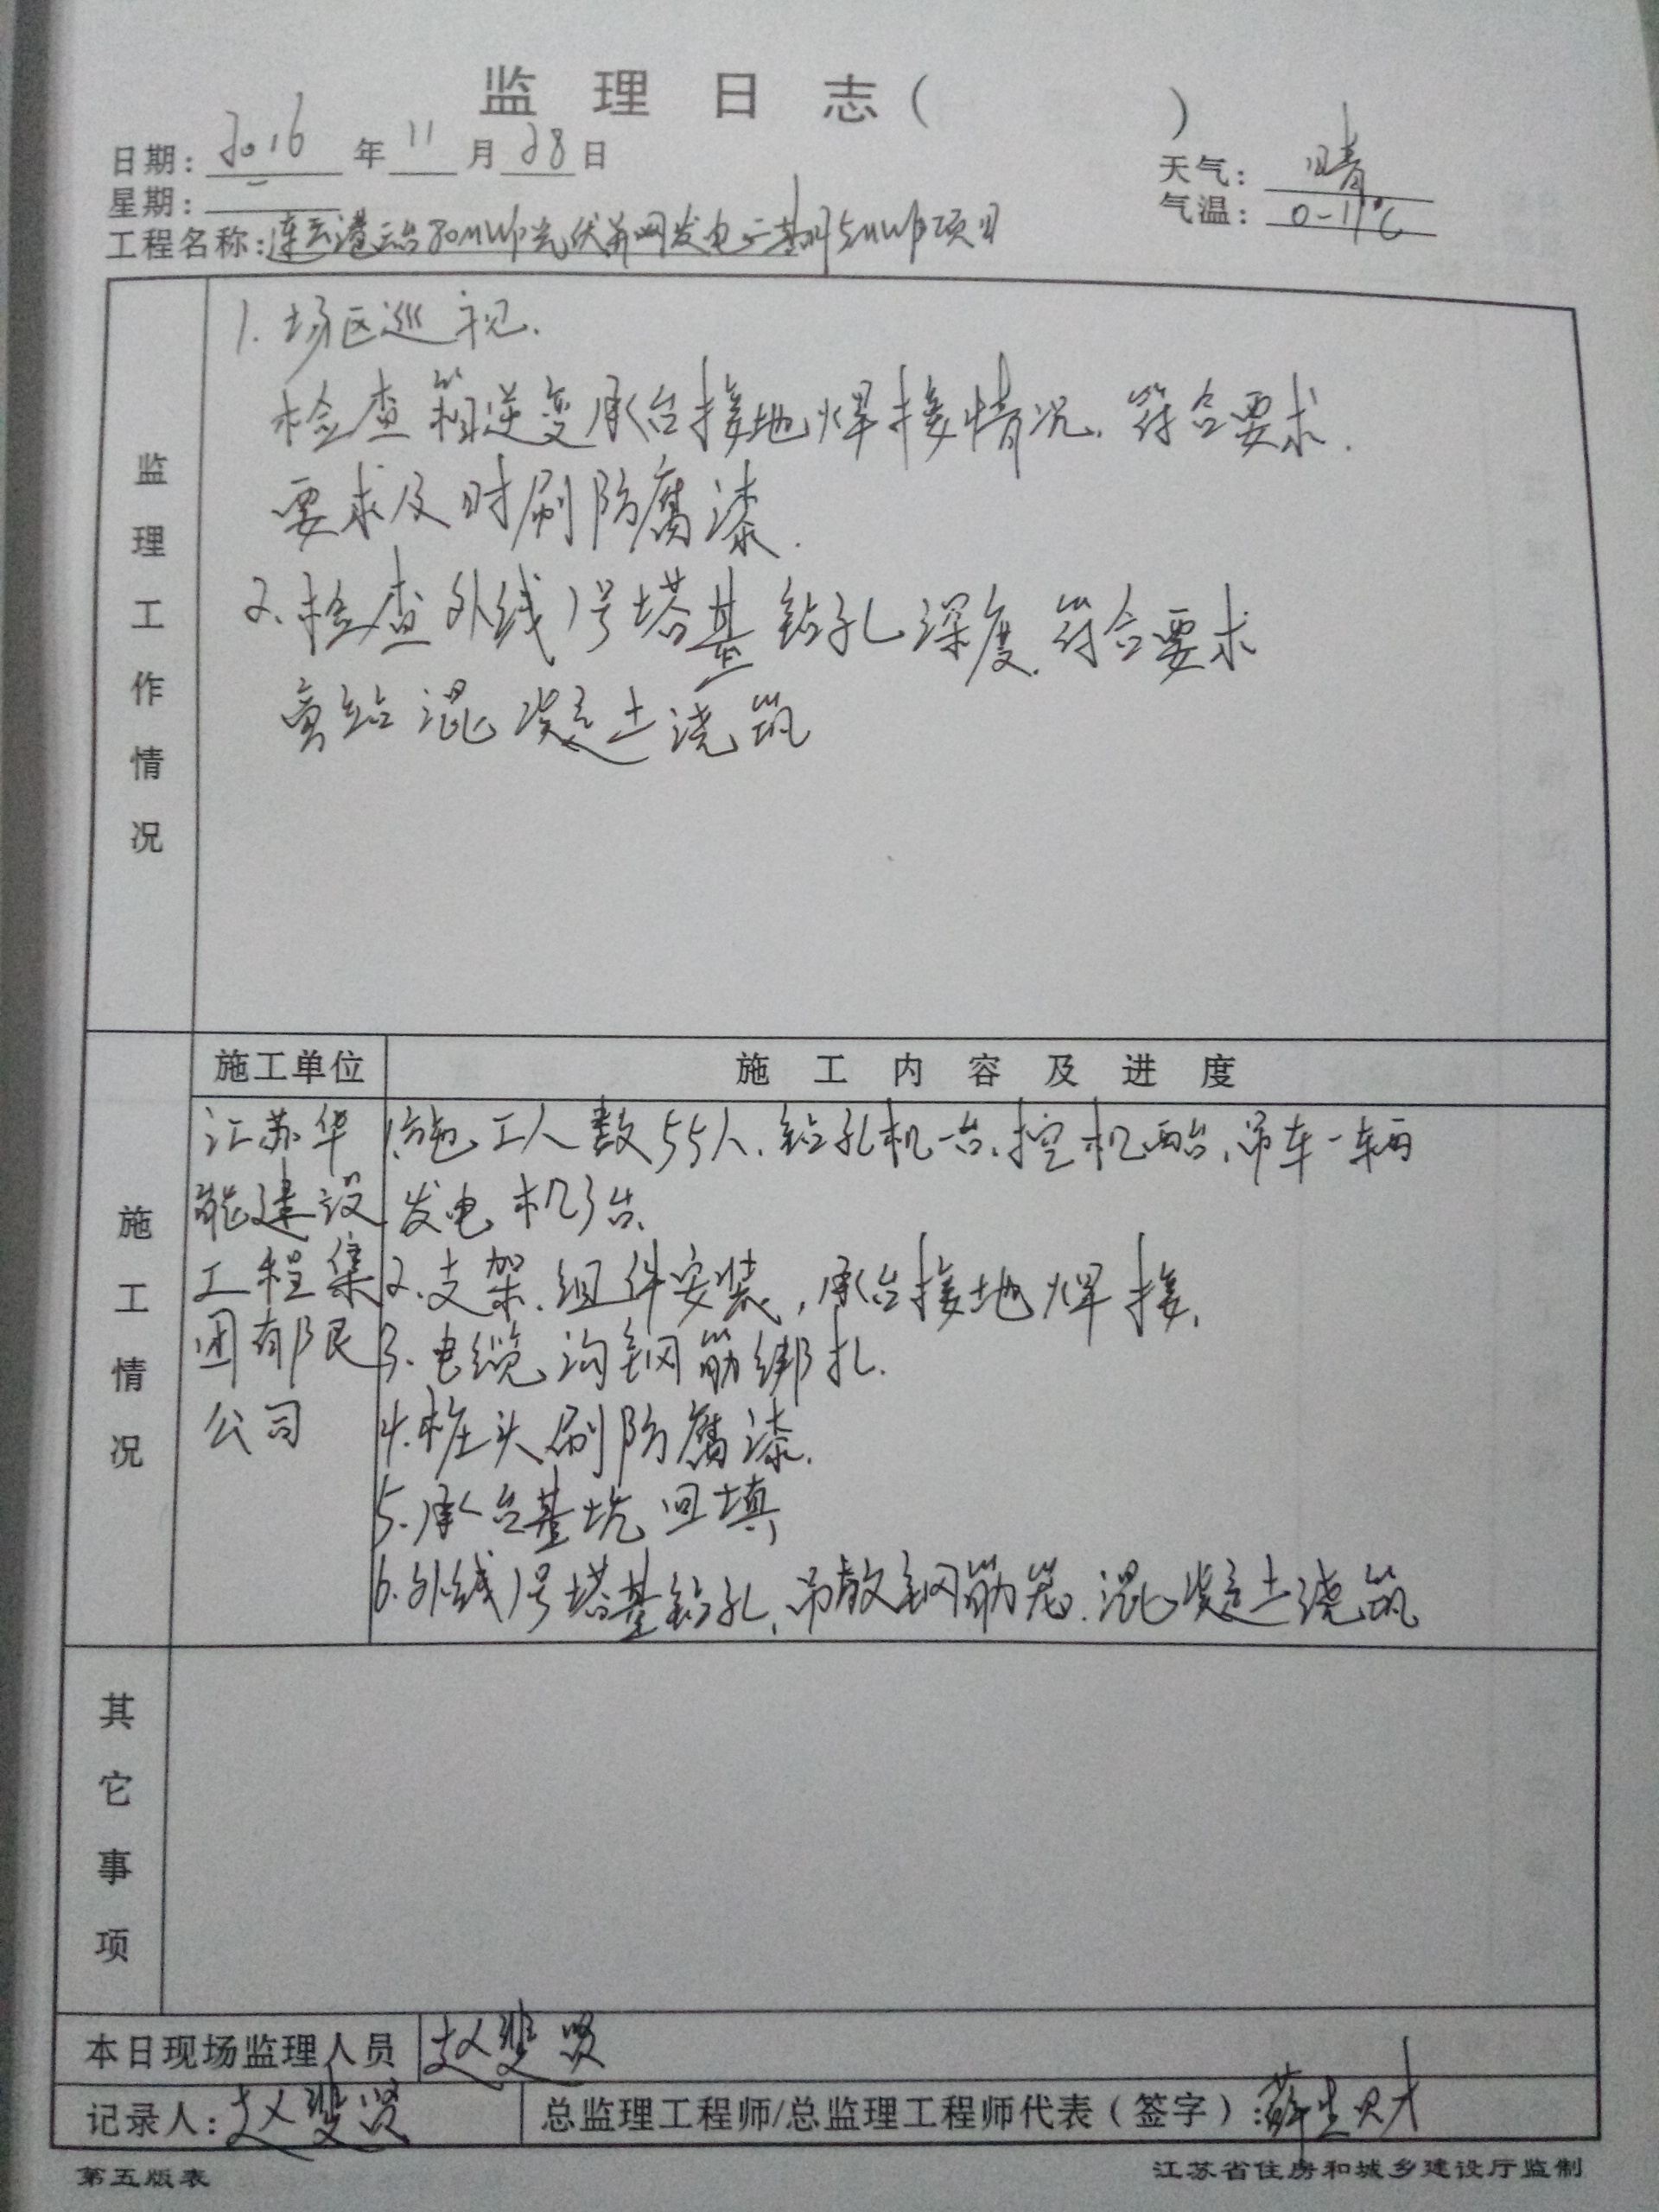 监理日志（ ）
日期：2016年11月28日
天气：晴
星期：一
气温：0-11℃
工程名称：连云港云台80MWp光伏并网发电二期75MWp项目
监理工作情况
1.场区巡视.
检查箱逆变承台接地焊接情况.符合要求.
要求及时刷防腐漆.
2.检查外线1号塔基钻孔深度.符合要求
旁站混凝土浇筑
施工情况
施工单位 施工内容及进度
江苏华能建设工程集团有限公司
1.施工人数55人.钻孔机一台.挖机两台.吊车一辆
发电机3台.
2.支架.组件安装，承台接地焊接.
3.电缆沟钢筋绑扎.
4.桩头刷防腐漆.
5.承台基坑回填
6.外线1号塔基钻孔.吊放钢筋笼.混凝土浇筑
其它事项
本日现场监理人员 赵斐贤
记录人：赵斐贤
总监理工程师/总监理工程师代表（签字）：薛生财
第五版表
江苏省住房和城乡建设厅监制